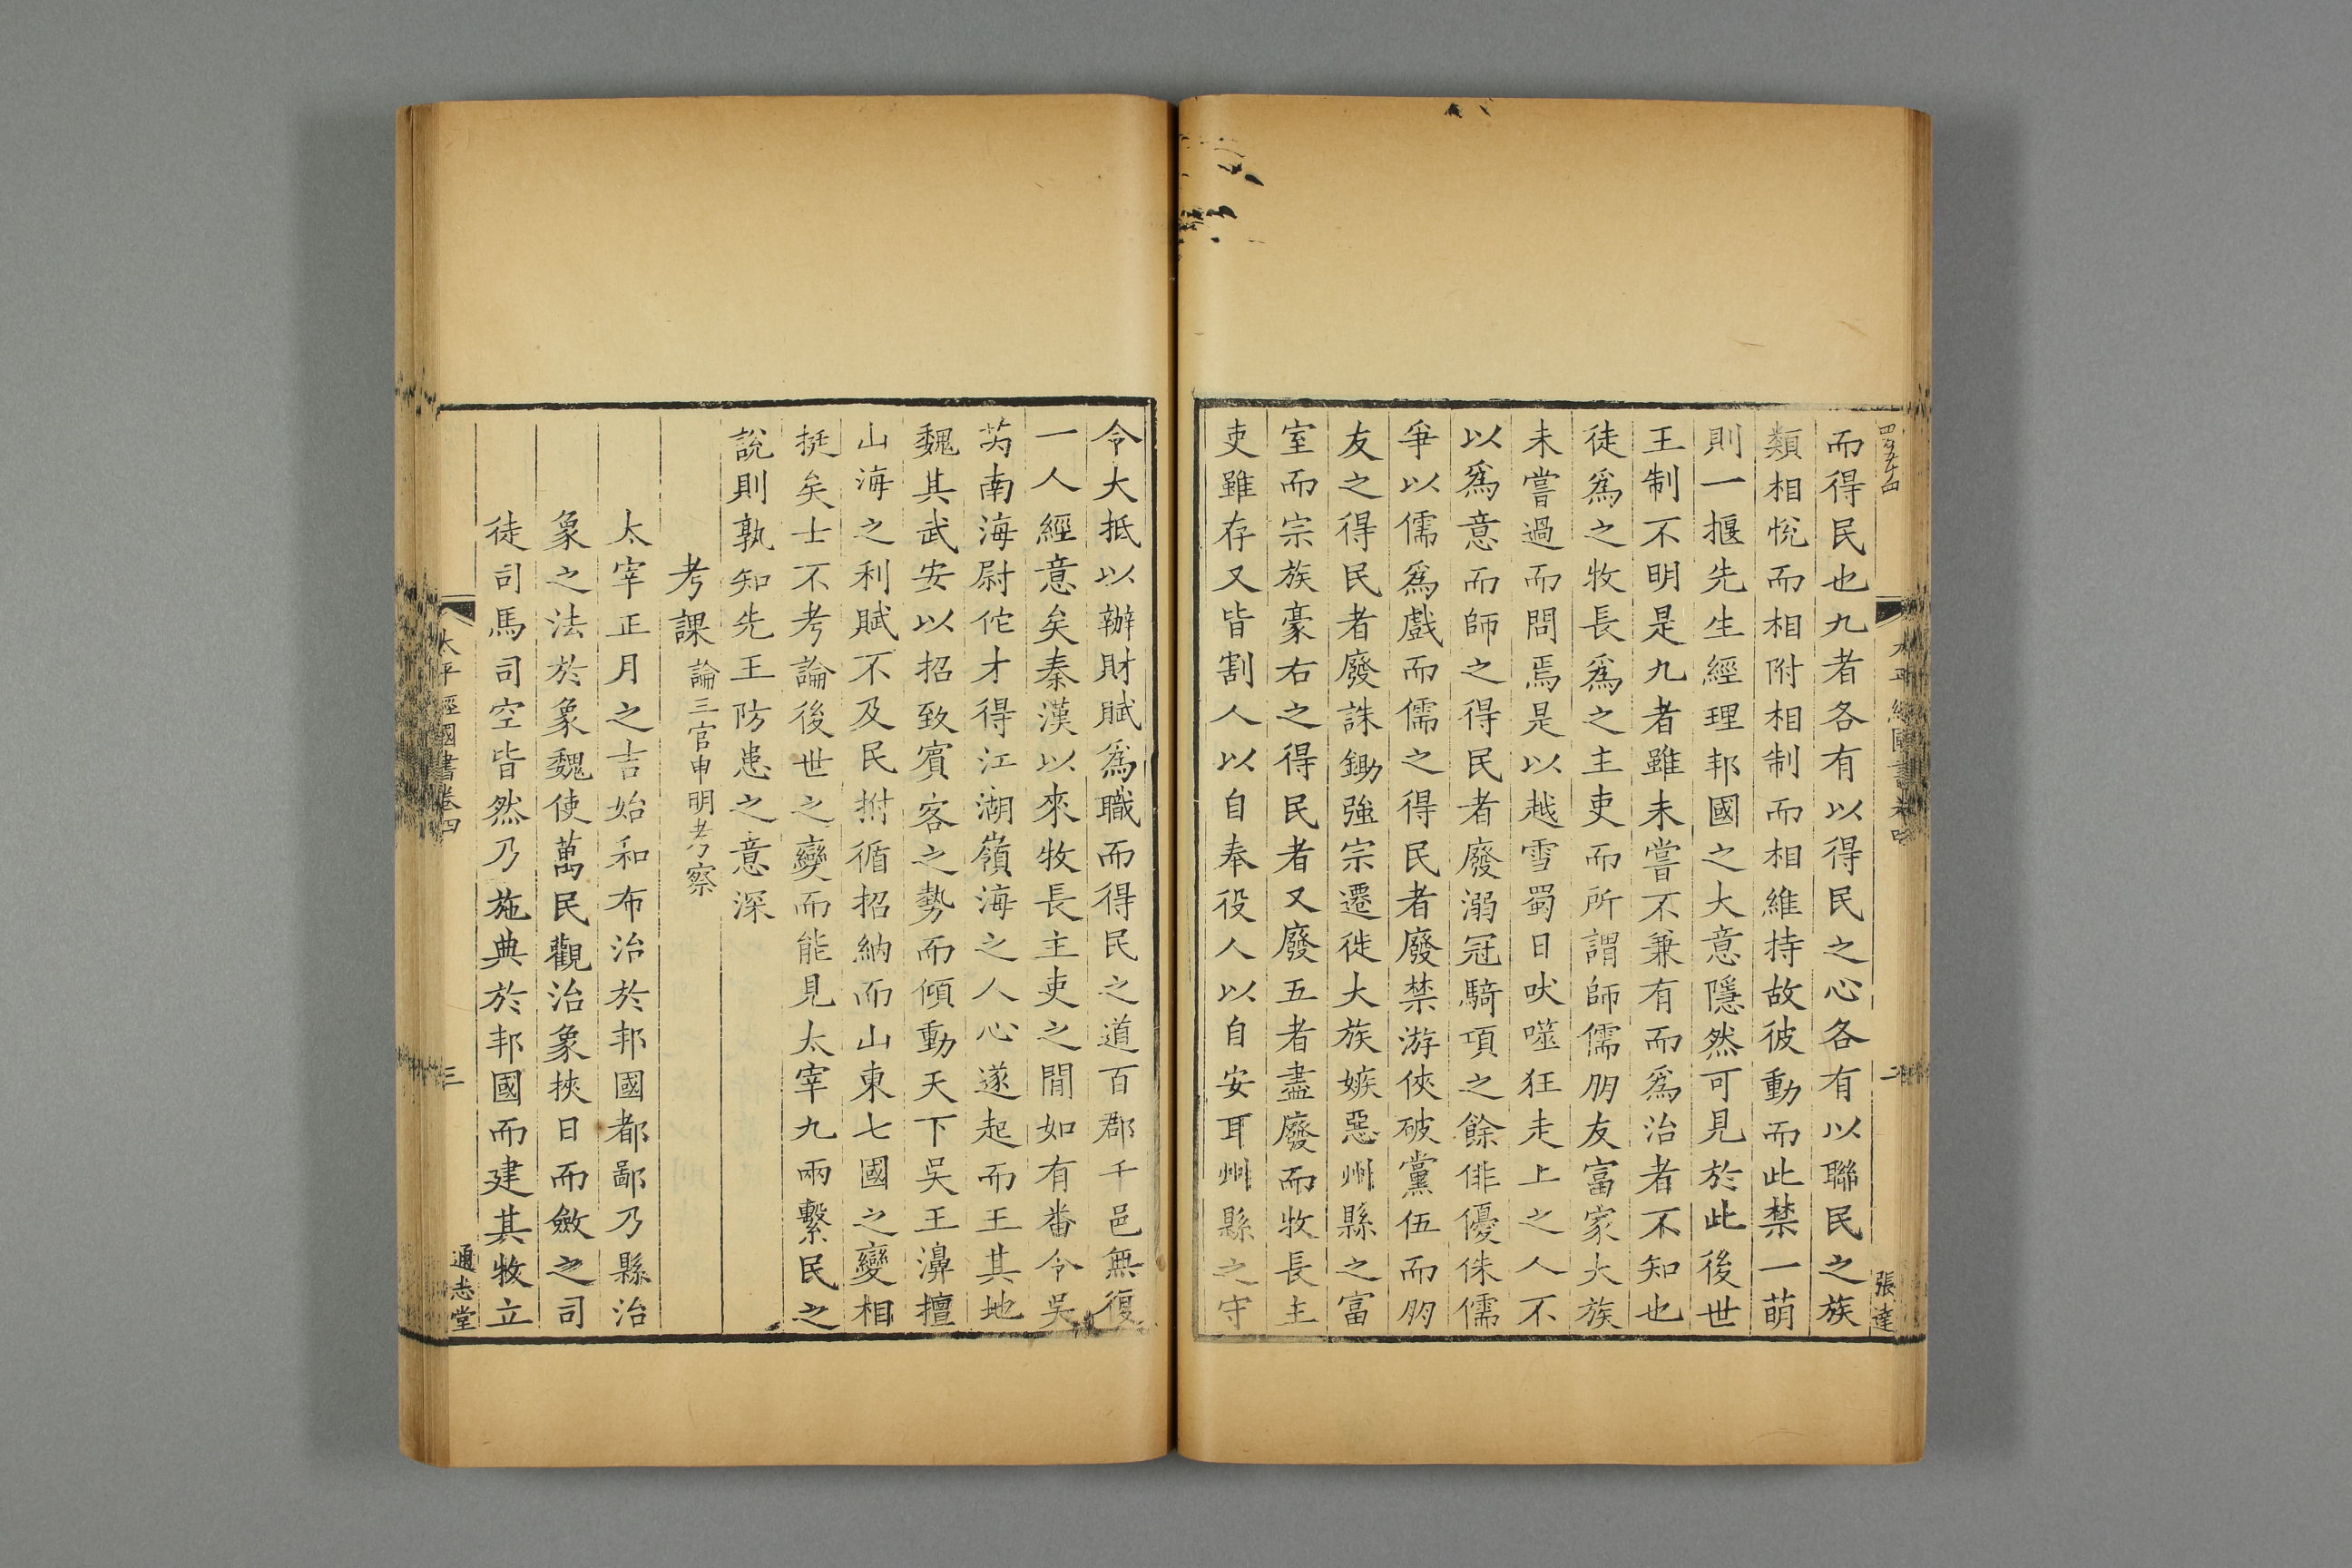 而得民也九者各有以得民之心各有以聯民之族
類相悅而相附相制而相維持故彼動而此禁一萌
則一揠先生經理邦國之大意隱然可見於此後世
王制不明是九者雖未嘗不兼有而爲治者不知也
徒爲之牧長爲之主吏而所謂師儒朋友富家大族
未嘗過而問焉是以越雪蜀日吠噬狂走上之人不
以爲意而師之得民者廢溺冠騎項之餘俳優侏儒
爭以儒爲戲而儒之得民者廢禁游俠破黨伍而朋
友之得民者廢誅鋤強宗遷徙大族嫉惡州縣之富
室而宗族豪右之得民者又廢五者盡廢而牧長主
吏雖存又皆割人以自奉役人以自安耳州縣之守
張達
令大抵以辦財賦爲職而得民之道百郡千邑無復
一人經意矣秦漢以來牧長主吏之間如有番令吳
芮南海尉佗才得江湖嶺海之人心遂起而王其地
魏其武安以招致賓客之勢而傾動天下吳王濞擅
山海之利賦不及民拊循招納而山東七國之變相
挺矣士不考論後世之變而能見太宰九兩繫民之
說則孰知先王防患之意深
考課論三官申明考察
太宰正月之吉始和布治於邦國都鄙乃縣治
象之法於象魏使萬民觀治象挾日而斂之司
徒司馬司空皆然乃施典於邦國而建其牧立
太平經國書卷四
三
通志堂